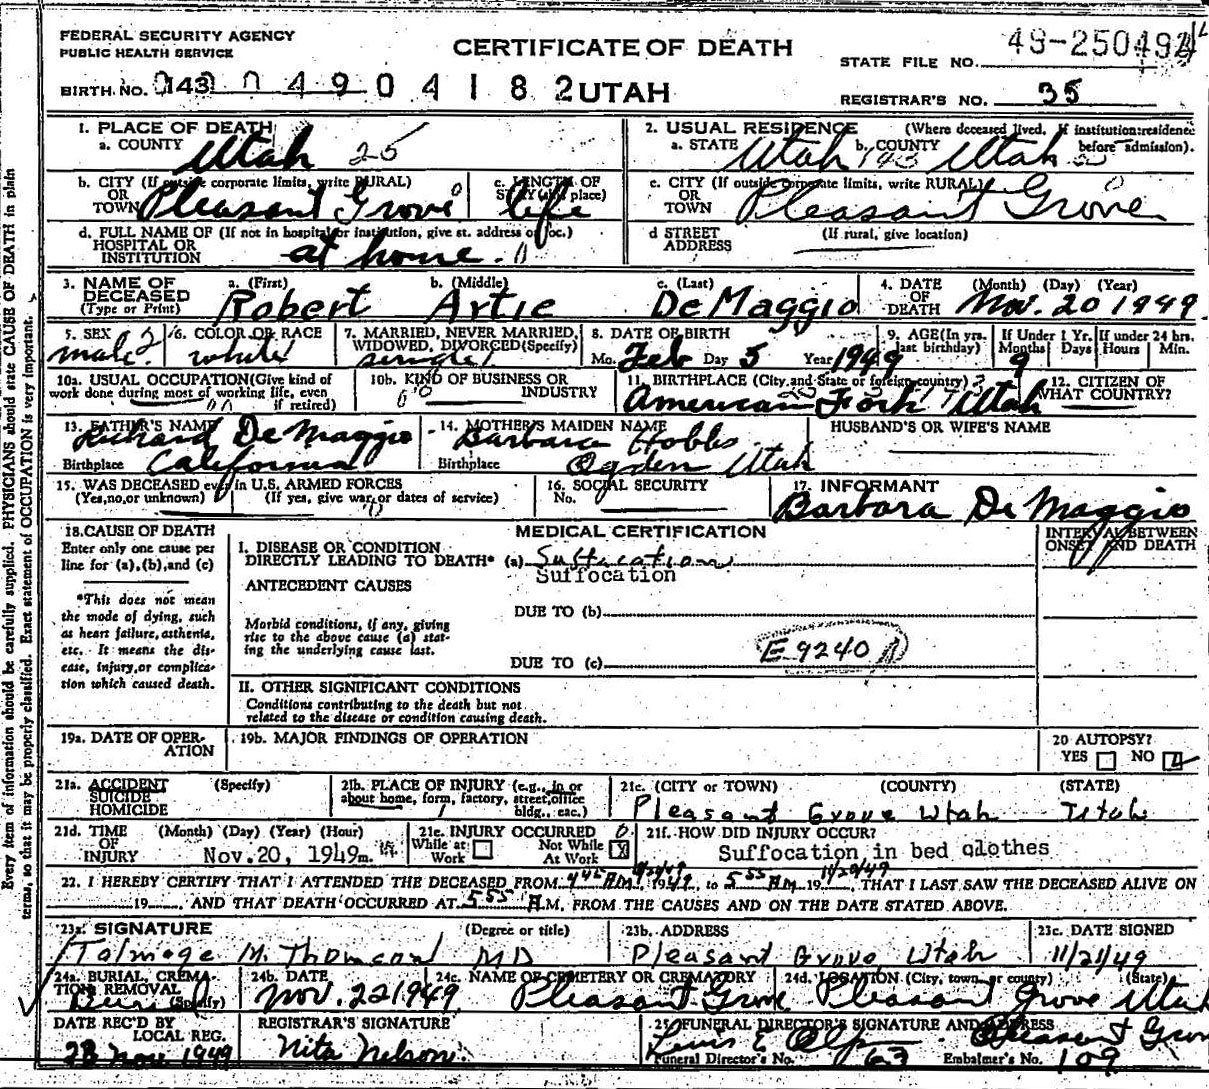 FEDERAL SECURITY AGENCY
PUBLIC HEALTH SERVICE
CERTIFICATE OF DEATH
STATE FILE NO. 49-250494
BIRTH NO. 143 0 4 9 0 4 1 8 2 UTAH
REGISTRAR'S NO. 35
1. PLACE OF DEATH
a. COUNTY Utah 25
2. USUAL RESIDENCE (Where deceased lived. If institution: residence before admission).
a. STATE Utah 143 b. COUNTY Utah
b. CITY (If outside corporate limits, write RURAL) OR TOWN Pleasant Grove
c. LENGTH OF STAY (in this place) life
c. CITY (If outside corporate limits, write RURAL) OR TOWN Pleasant Grove
d. FULL NAME OF (If not in hospital or institution, give st. address or loc.) HOSPITAL OR INSTITUTION at home
d STREET ADDRESS (If rural, give location)
3. NAME OF DECEASED (Type or Print)
a. (First) Robert b. (Middle) Artie c. (Last) DeMaggio
4. DATE OF DEATH (Month) (Day) (Year) Nov. 20 1949
5. SEX male 2
6. COLOR OR RACE white
7. MARRIED, NEVER MARRIED, WIDOWED, DIVORCED (Specify) single
8. DATE OF BIRTH Mo. Feb Day 5 Year 1949
9. AGE (In yrs. last birthday) If Under 1 Yr. Months 9 Days If under 24 hrs. Hours Min.
10a. USUAL OCCUPATION (Give kind of work done during most of working life, even if retired)
10b. KIND OF BUSINESS OR INDUSTRY
11. BIRTHPLACE (City and State or foreign country) American Fork Utah
12. CITIZEN OF WHAT COUNTRY?
13. FATHER'S NAME Richard DeMaggio
Birthplace California
14. MOTHER'S MAIDEN NAME Barbara Hobbs
Birthplace Ogden Utah
HUSBAND'S OR WIFE'S NAME
15. WAS DECEASED ever in U.S. ARMED FORCES
(Yes, no, or unknown) (If yes, give war or dates of service)
16. SOCIAL SECURITY No.
17. INFORMANT Barbara DeMaggio
18. CAUSE OF DEATH
Enter only one cause per line for (a), (b), and (c)
*This does not mean the mode of dying, such as heart failure, asthenia, etc. It means the disease, injury, or complication which caused death.
MEDICAL CERTIFICATION
INTERVAL BETWEEN ONSET AND DEATH
I. DISEASE OR CONDITION DIRECTLY LEADING TO DEATH* (a) Suffication
Suffocation
ANTECEDENT CAUSES
Morbid conditions, if any, giving rise to the above cause (a) stating the underlying cause last.
DUE TO (b)
DUE TO (c) E 9240
II. OTHER SIGNIFICANT CONDITIONS
Conditions contributing to the death but not related to the disease or condition causing death.
19a. DATE OF OPERATION
19b. MAJOR FINDINGS OF OPERATION
20 AUTOPSY?
YES NO
21a. ACCIDENT SUICIDE HOMICIDE (Specify)
21b. PLACE OF INJURY (e.g., in or about home, form, factory, street, office bldg., eac.)
21c. (CITY or TOWN) (COUNTY) (STATE)
Pleasant Grove Utah Utah
21d. TIME OF INJURY (Month) (Day) (Year) (Hour) Nov. 20, 1949 m.
21e. INJURY OCCURRED
While at Work Not While At Work X
21f. HOW DID INJURY OCCUR?
Suffocation in bed clothes
22. I HEREBY CERTIFY THAT I ATTENDED THE DECEASED FROM 4 45 AM 11/20/49 1949, to 5 55 AM 19 11/20/49, THAT I LAST SAW THE DECEASED ALIVE ON
19 , AND THAT DEATH OCCURRED AT 5 55 A.M. FROM THE CAUSES AND ON THE DATE STATED ABOVE.
23a. SIGNATURE (Degree or title)
Talmage M. Thomson MD
23b. ADDRESS
Pleasant Grove Utah
23c. DATE SIGNED
11/21/49
24a. BURIAL, CREMATION, REMOVAL (Specify) Burial
24b. DATE Nov. 22 1949
24c. NAME OF CEMETERY OR CREMATORY Pleasant Grove
24d. LOCATION (City, town, or county) (State) Pleasant Grove Utah
DATE REC'D BY LOCAL REG. 23 Nov 1949
REGISTRAR'S SIGNATURE Nita Nelson
25. FUNERAL DIRECTOR'S SIGNATURE AND ADDRESS
Lewis E Olp Pleasant Grove
Funeral Director's No. 63 Embalmer's No. 109
Every item of information should be carefully supplied. PHYSICIANS should state CAUSE OF DEATH in plain
terms, so that it may be properly classified. Exact statement of OCCUPATION is very important.